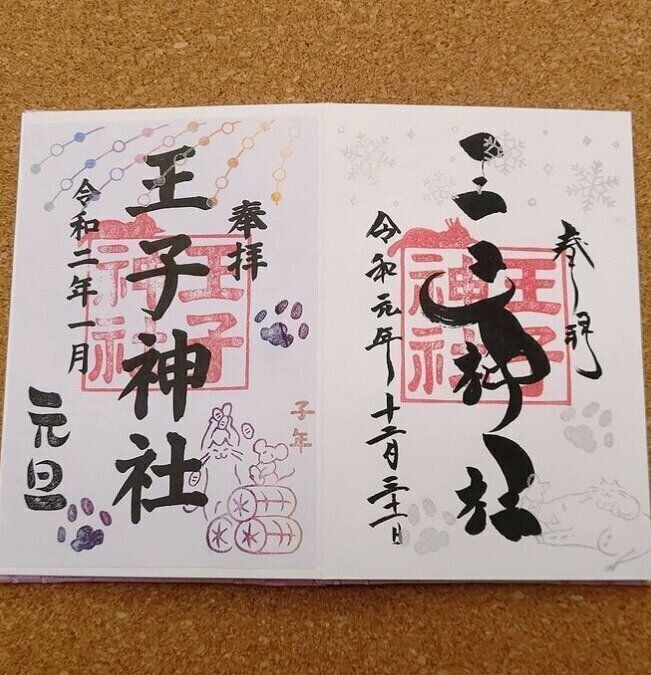 奉拝
王子神社
王子
神社
令和元年十二月三十一日
奉拝
王子神社
王子
神社
子年
令和二年一月
元旦